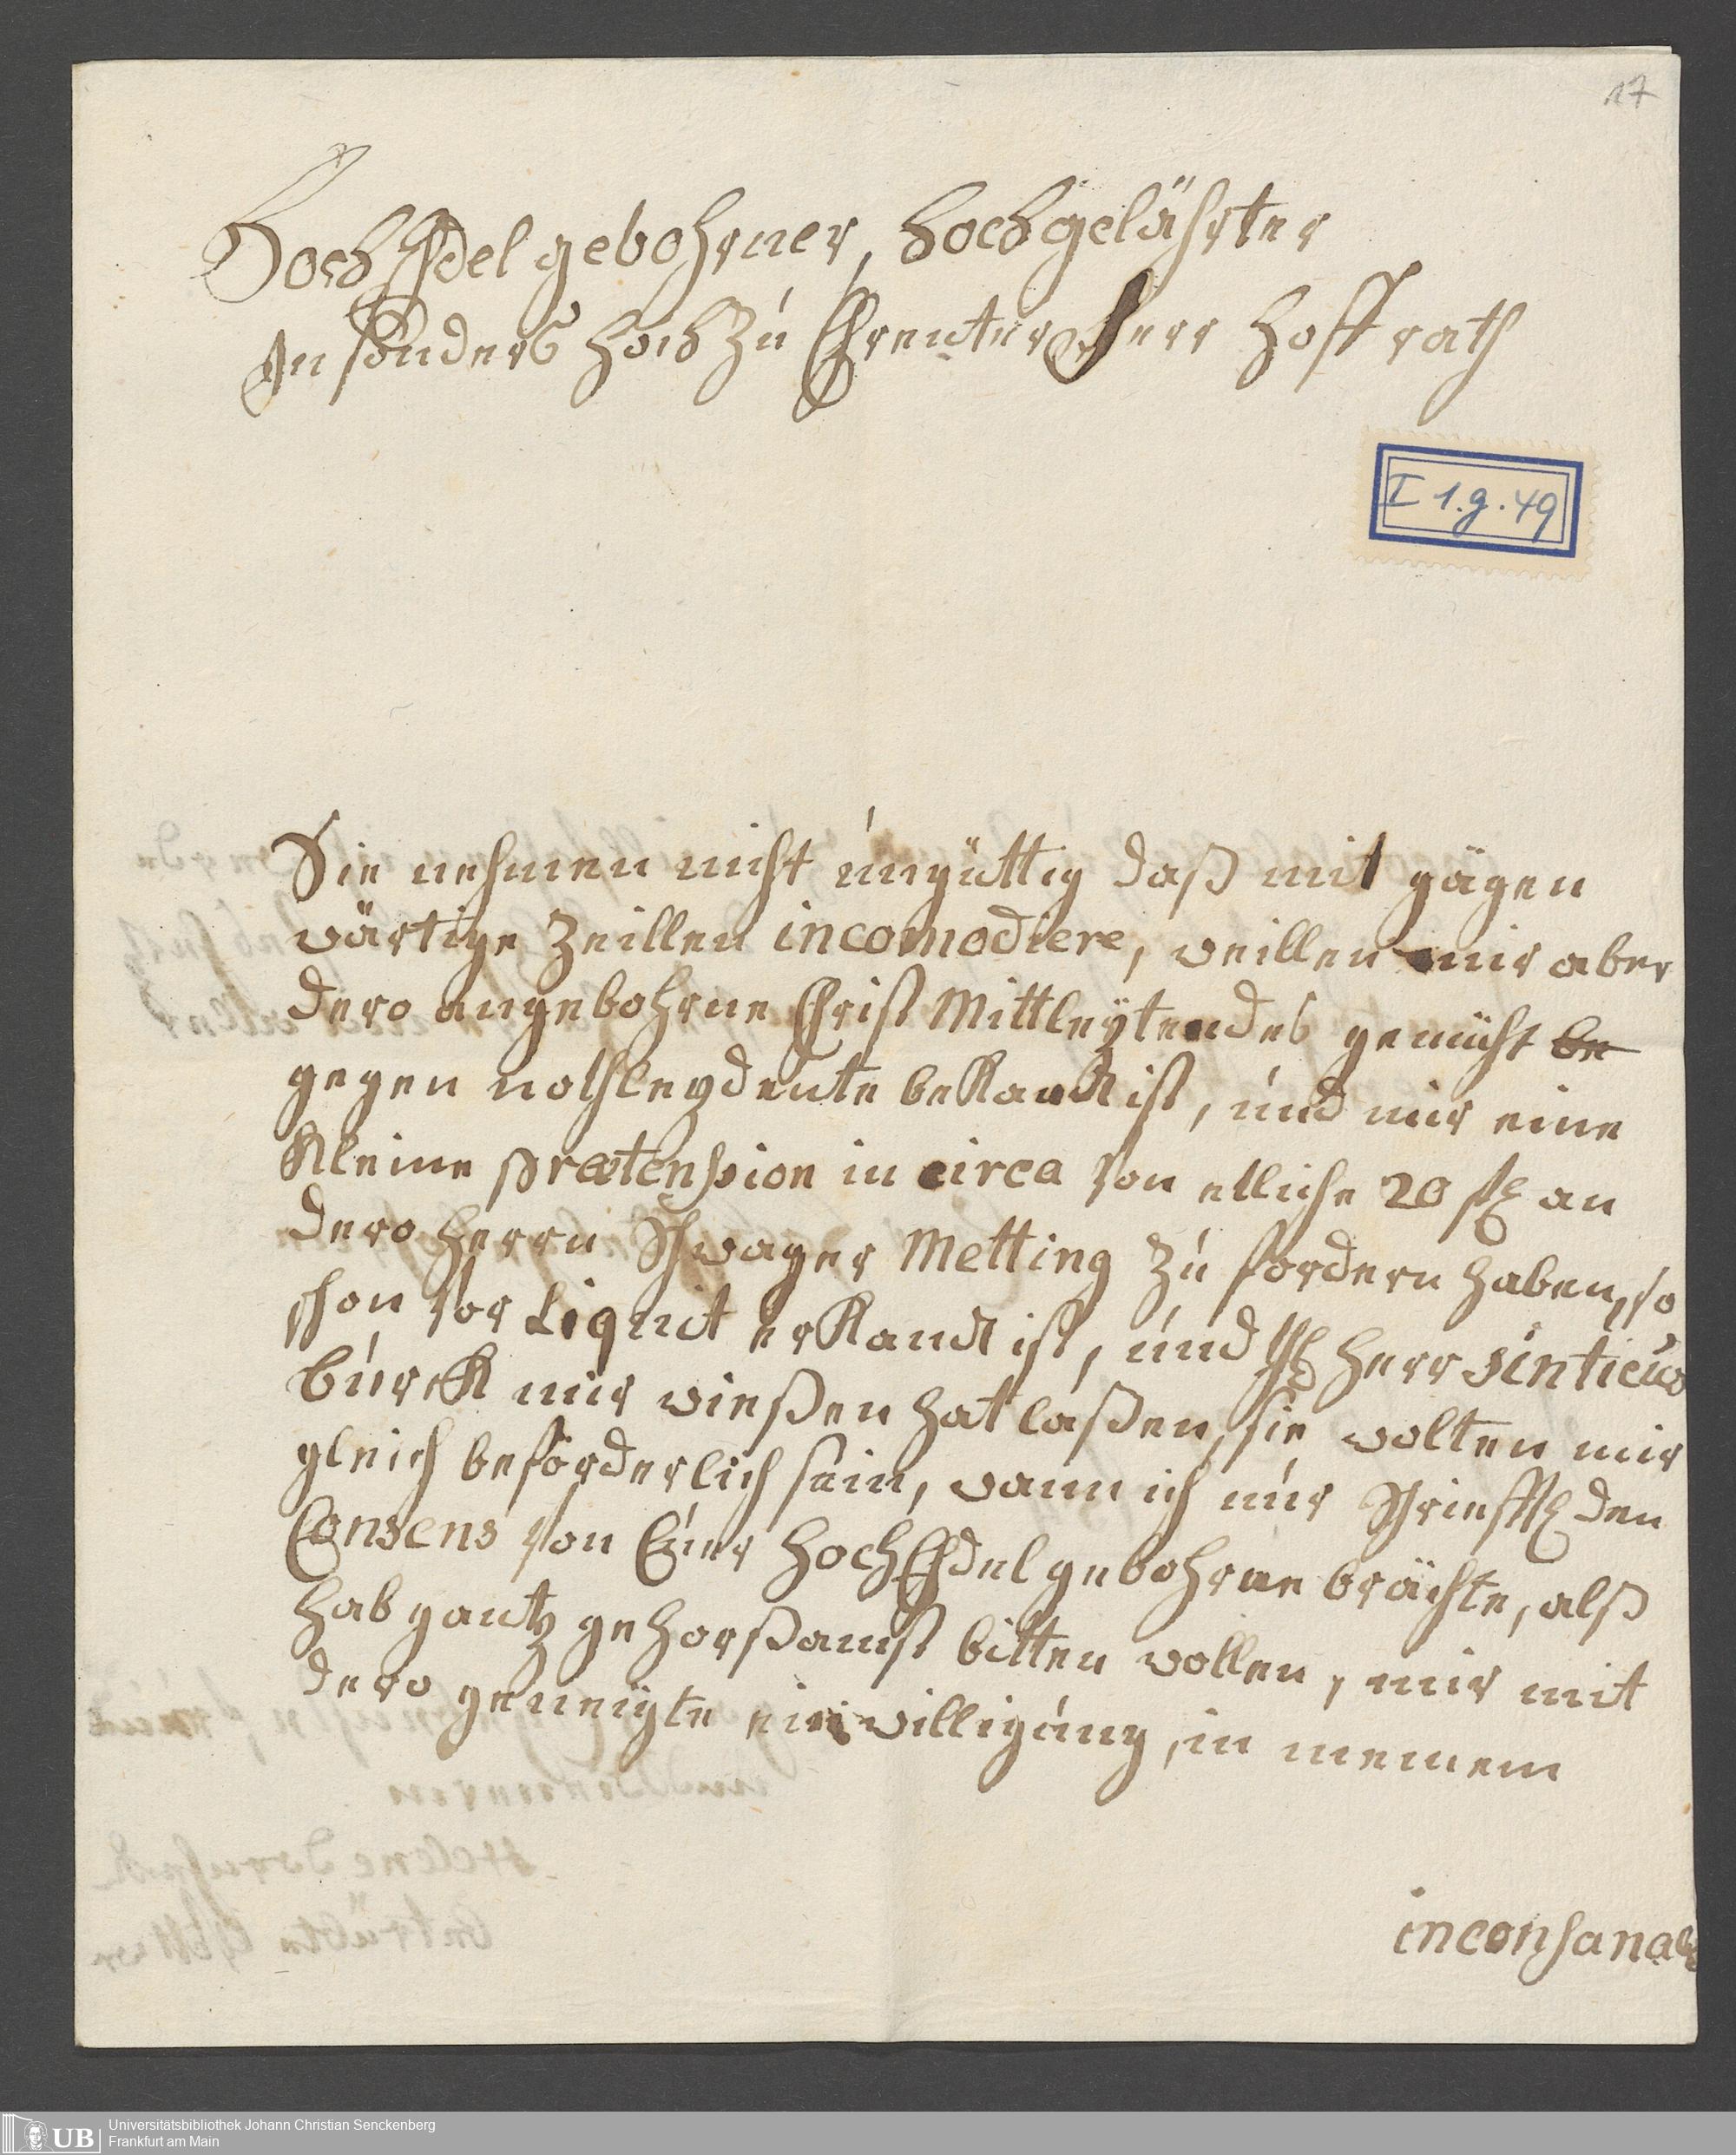 17
Hoch Edel gebohrner, hochgelährter
In sonders hoch zu Ehrenter Herr Hoffrath
I 1.g.49
Sie nehmen nicht ungüttig daß mit gägen
wärtige Zeillen incomodiere, weillen mir aber
dero angebohrne Christ Mittleÿtendes gemüht be
gegen nothleydente bekandt ist, und mir eine
kleine prætension in circa von etliche 20 fl an
dero Herrn Schwager Metting zu fordern haben, so
schon vor Liquit erkandt ist, und Herr sinticus
burck mir wießen hat laßen, sie wolten mir
gleich beforderlich sein, wann ich nur Schriefftl den
Consens von Euer HochEdelgebohrne brächte, alß
hab gantz gehorßamst bitten wollen, mir mit
dero geneigte einwilligung, in meinem
Universitätsbibliothek Johann Christian Senckenberg
UB
Frankfurt am Main